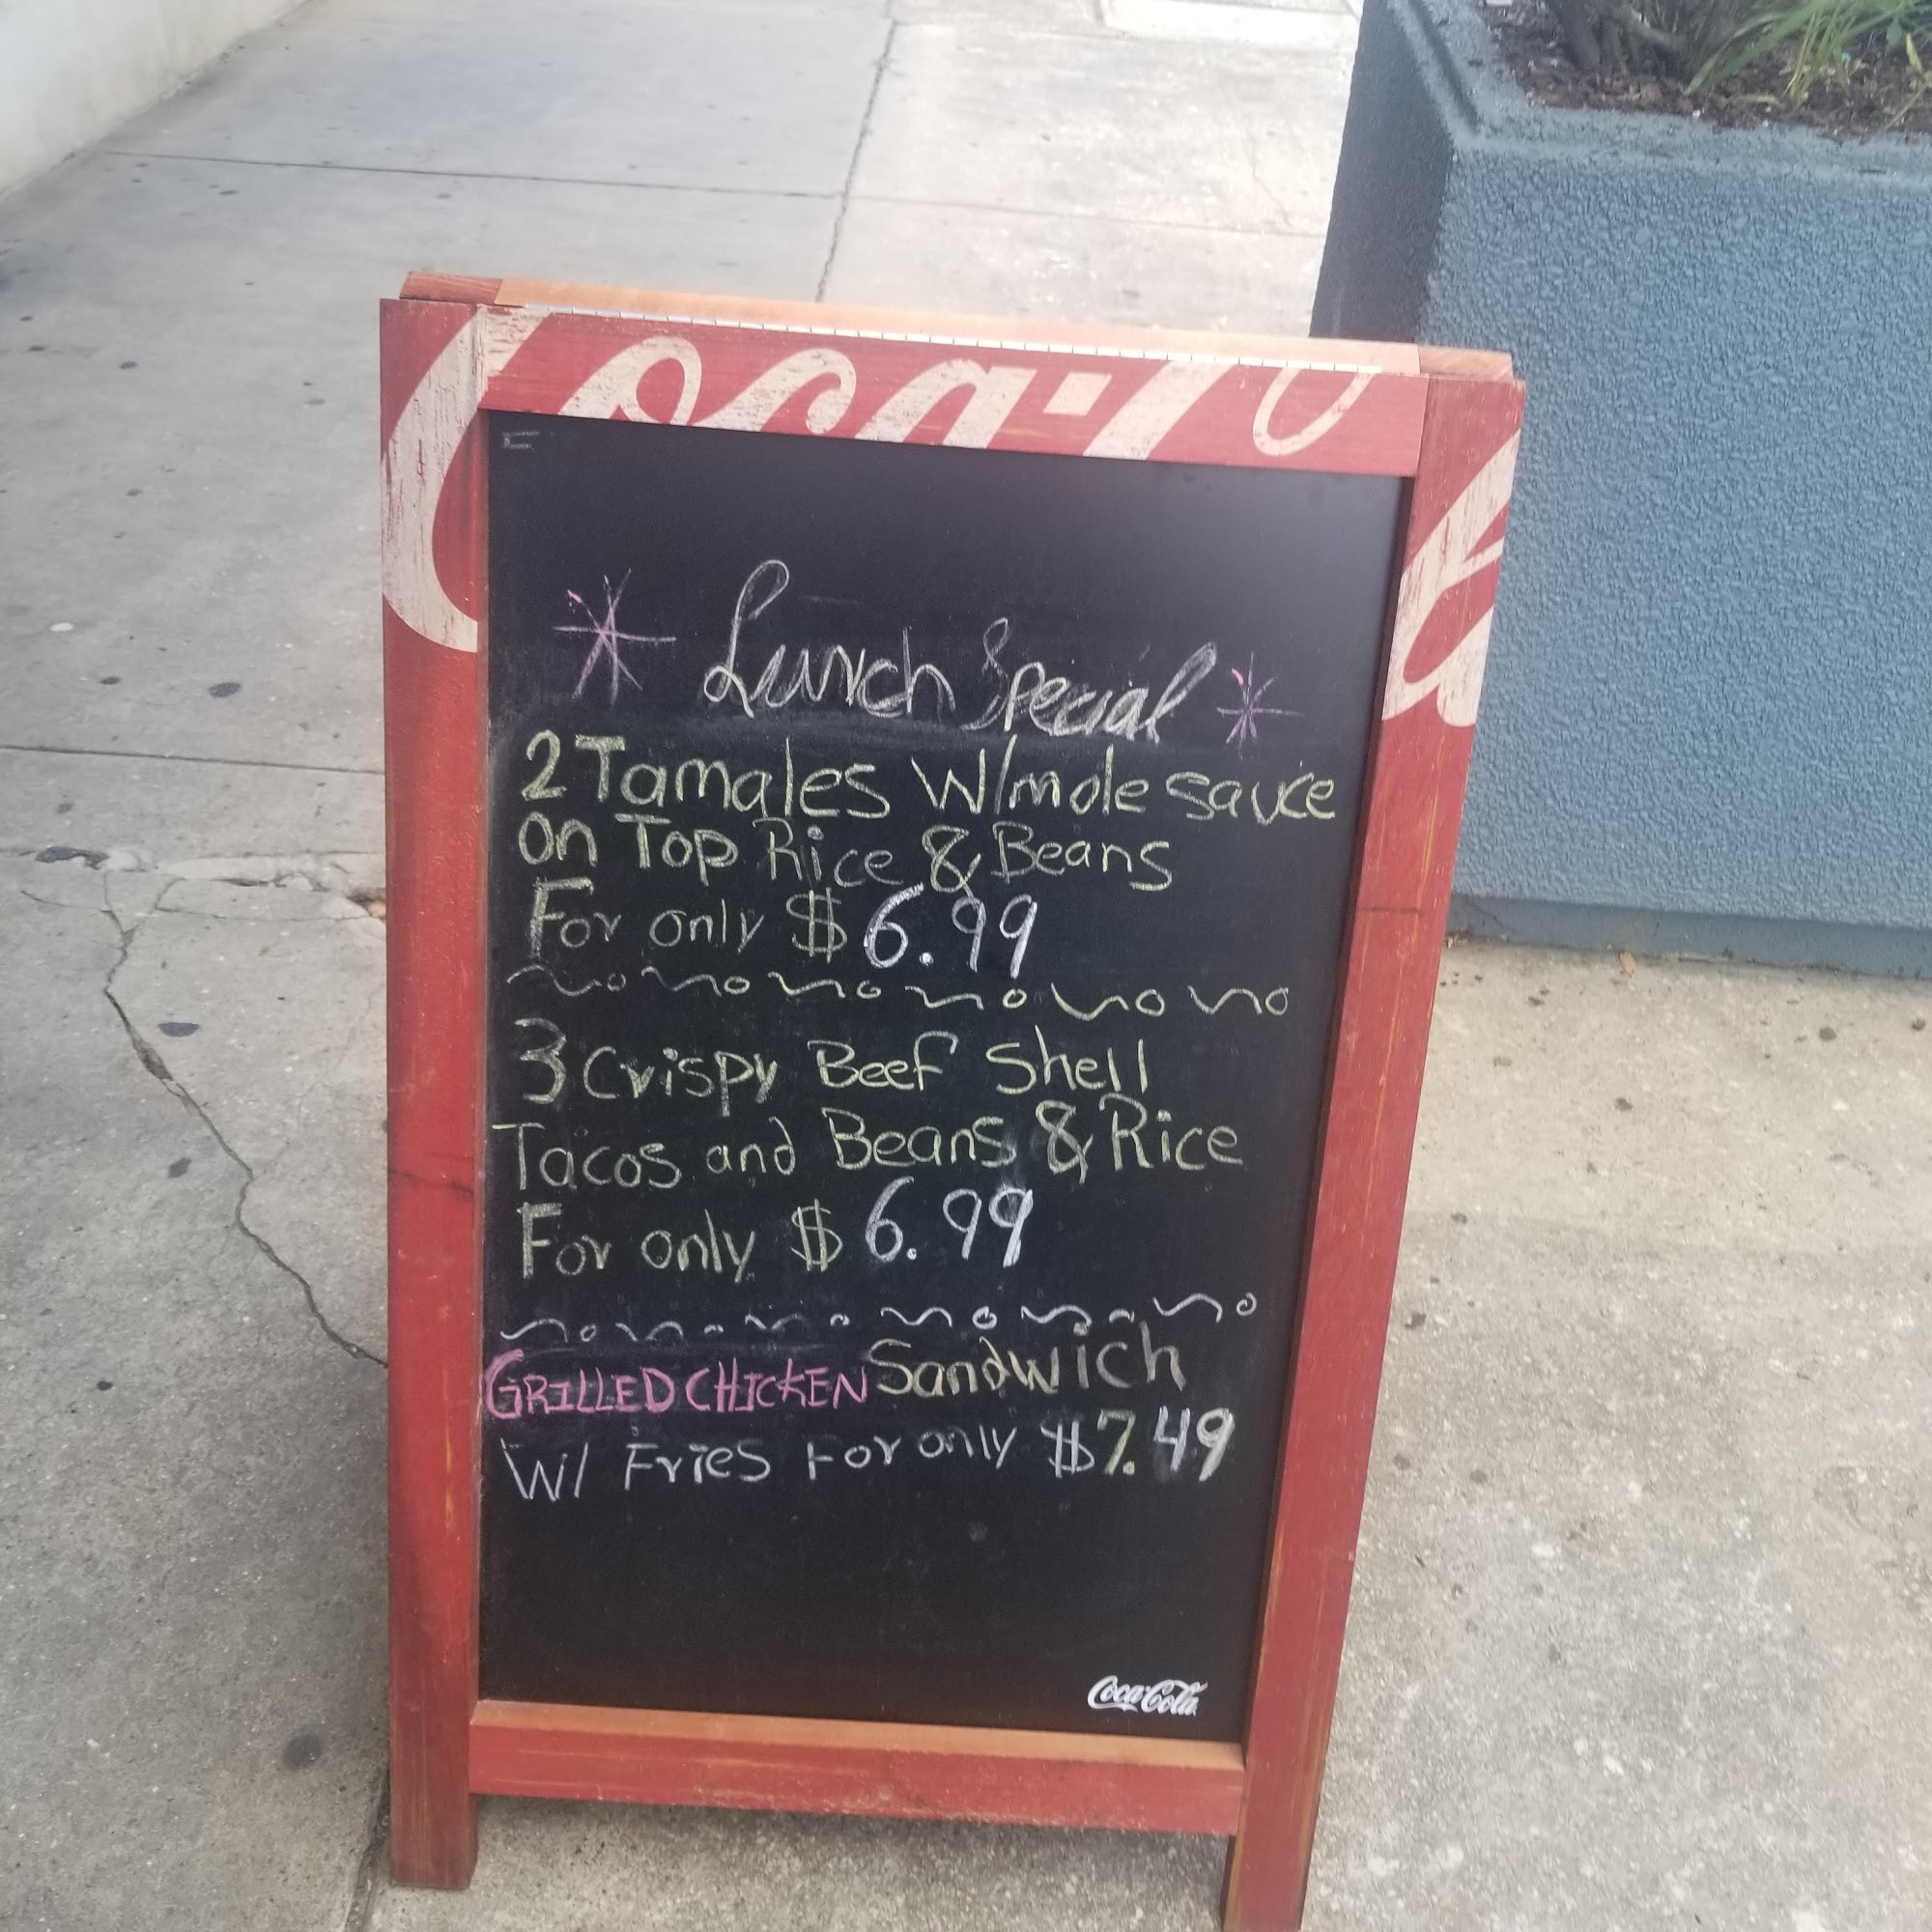 Coca-Co
* Lunch Special *
2 Tamales W/mole sauce
on Top Rice & Beans
For only $6.99
3 Crispy Beef Shell
Tacos and Beans & Rice
For only $6.99
GRILLED CHICKEN Sandwich
W/ Fries For only $7.49
Coca-Cola